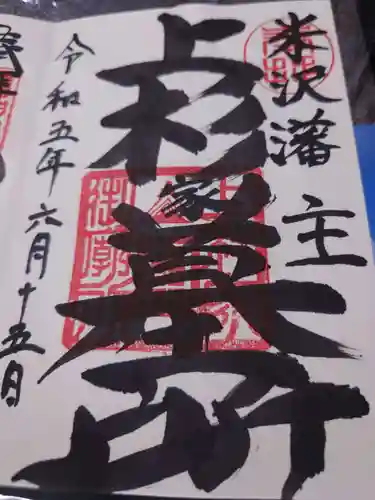 米沢藩主
上杉家墓所
令和五年六月十五日